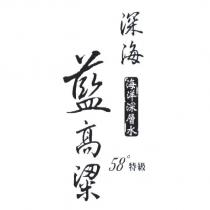 深海
海洋深層水
藍高粱
58°特級